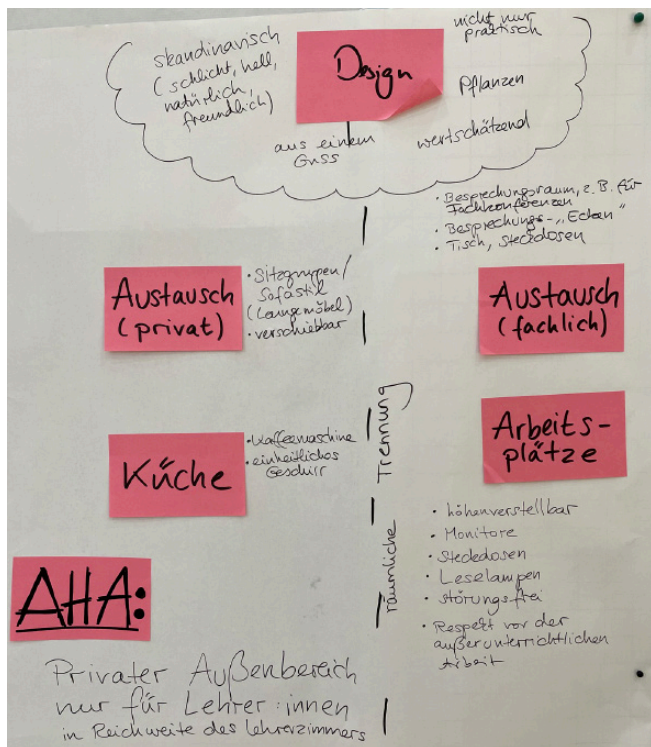 Design
skandinavisch
(schlicht, hell,
natürlich,
freundlich)
nicht nur
praktisch
Pflanzen
aus einem
Guss
wertschätzend
• Besprechungsraum, z.B. für
Fachkonferenzen
• Besprechungs-„Ecken"
• Tisch, Steckdosen
Austausch
(privat)
• Sitzgruppen/
Sofastil
(Loungemöbel)
• verschiebbar
Austausch
(fachlich)
Küche
• Kaffeemaschine
• einheitliches
Geschirr
räumliche Trennung
Arbeits-
plätze
• höhenverstellbar
• Monitore
• Steckdosen
• Leselampen
• störungsfrei
• Respekt vor der
außerunterrichtlichen
Arbeit
AHA:
Privater Außenbereich
nur für Lehrer:innen
in Reichweite des Lehrerzimmers